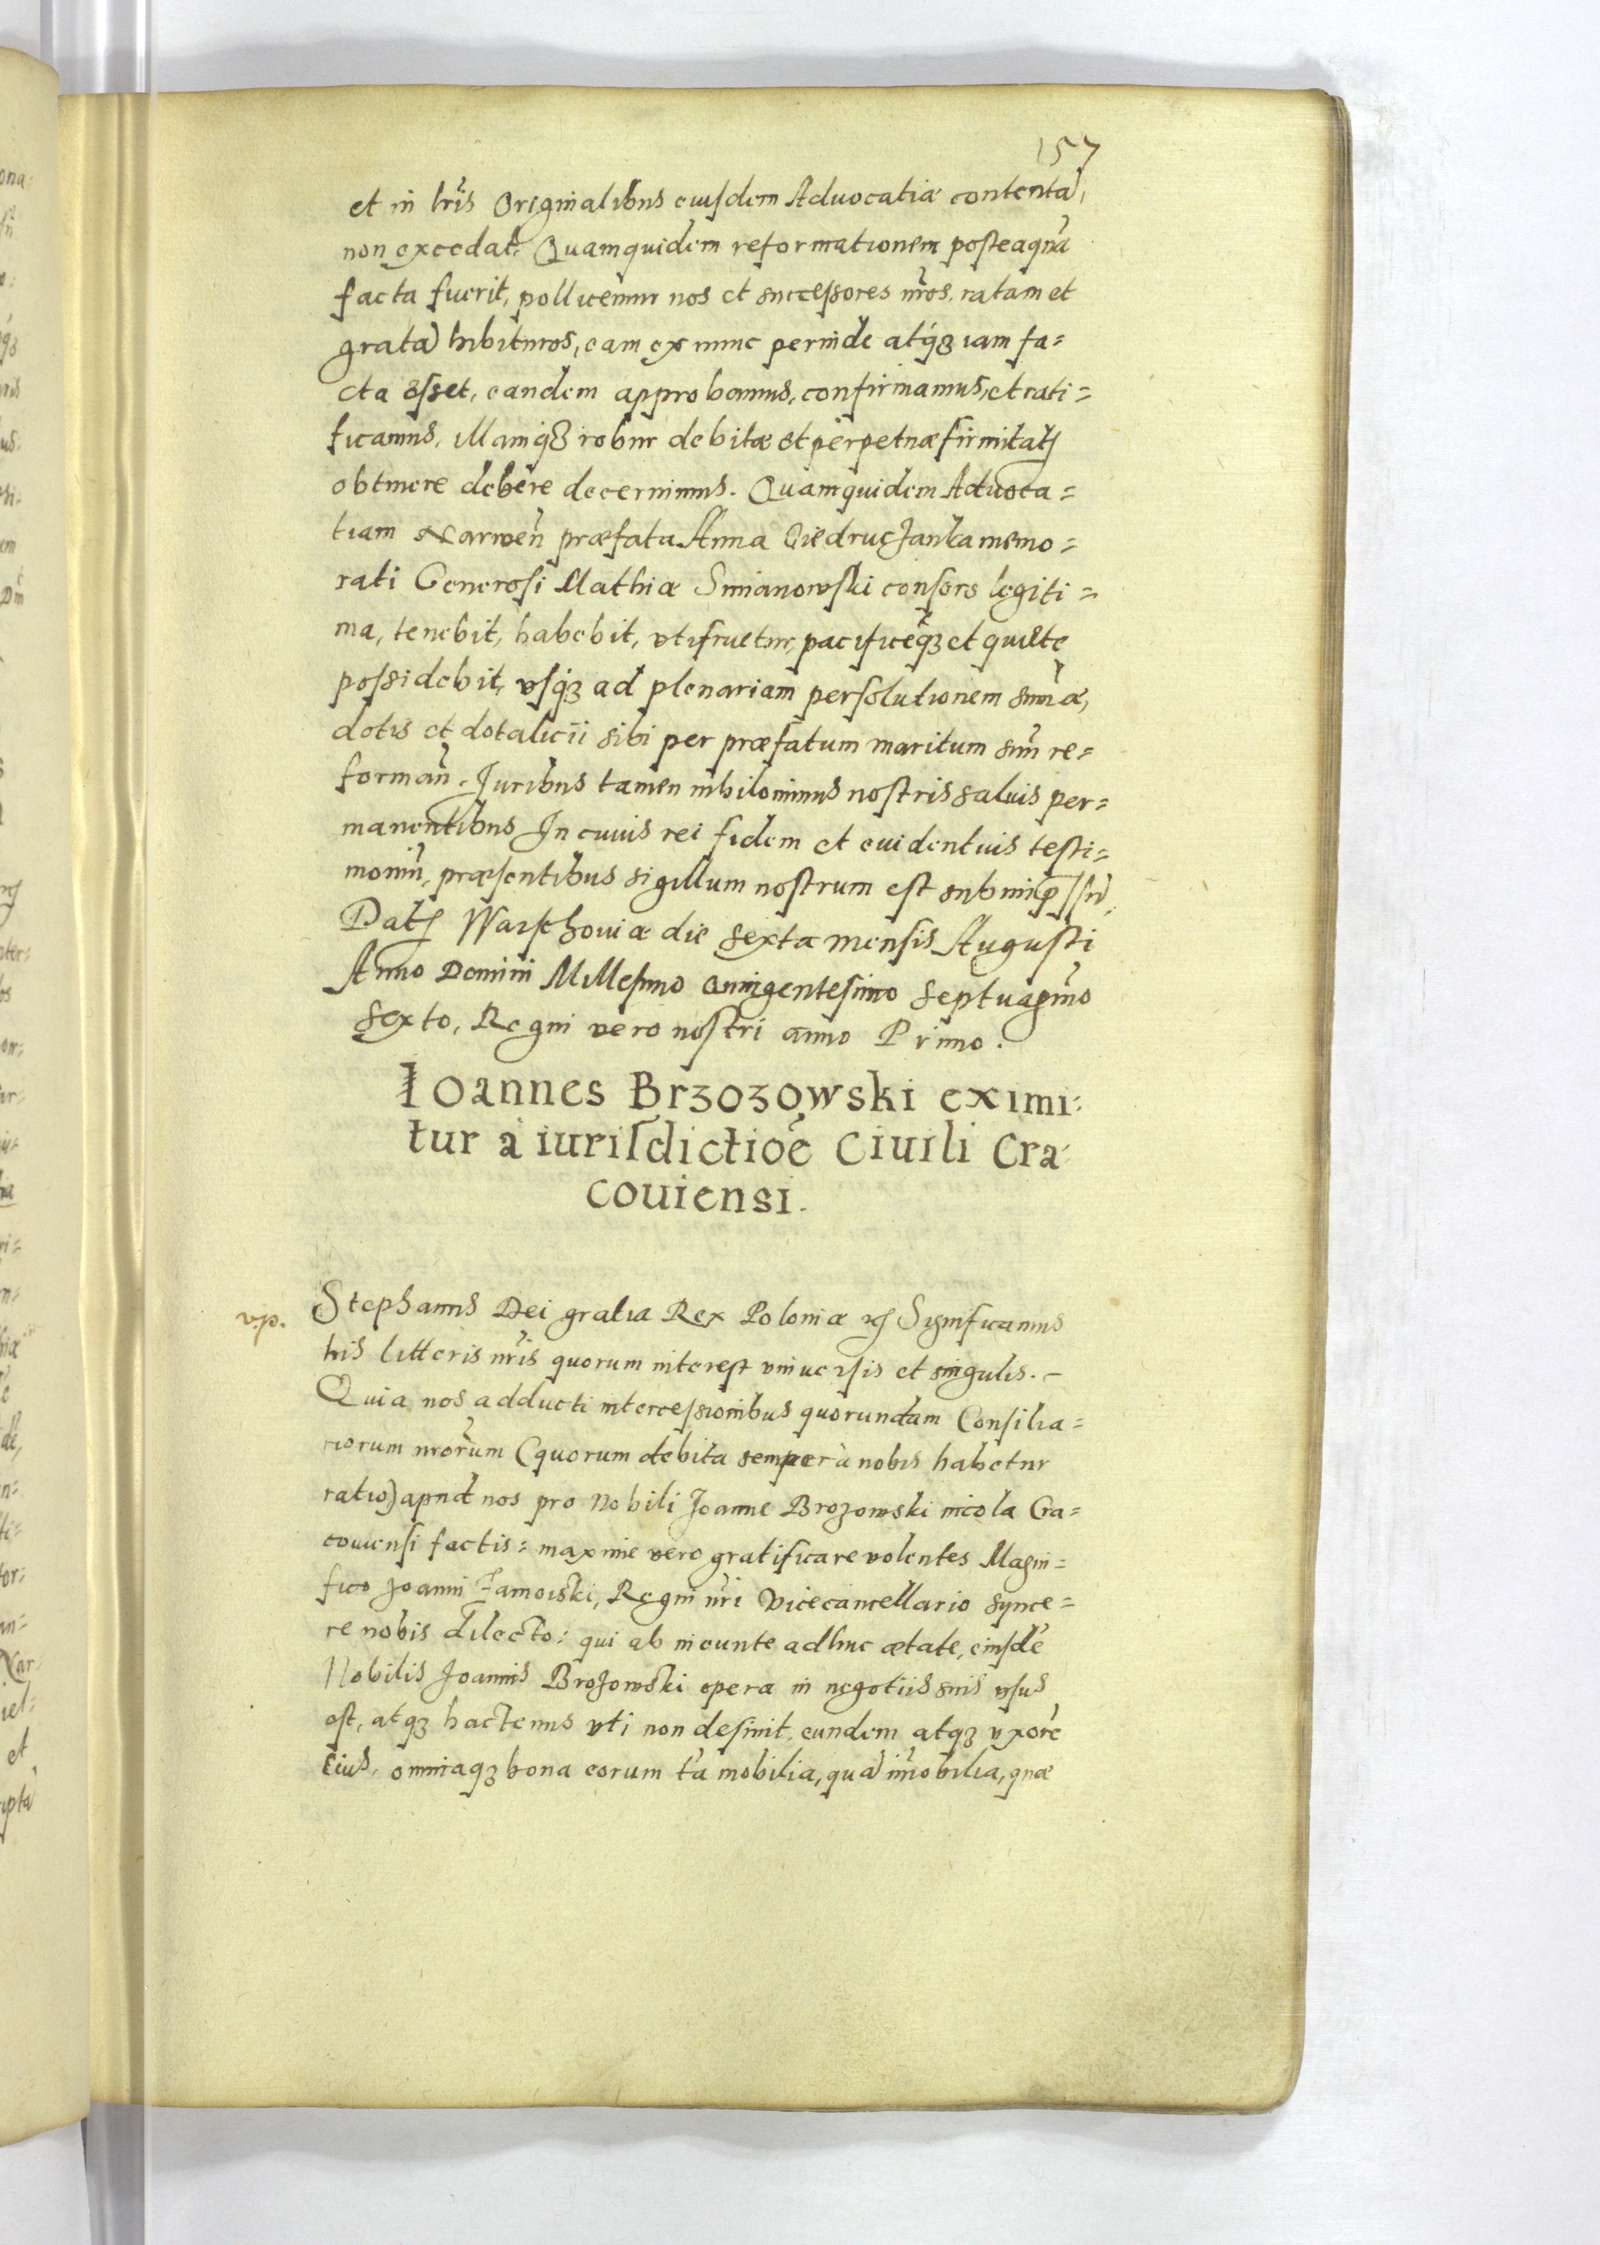 157
et in lris Originalibus eiusdem Aduocatiæ contenta,
non excedat. Quamquidem reformationem posteaquā
facta fuerit, pollicemur nos et successores nr̄os, ratam et
gratā habituros, eam ex nunc perinde atq́ꝫ iam fa=
cta esset, eandem approbamus, confirmamus, et rati=
ficamus, illamq́ꝫ robur debitæ et perpetuæ firmitatꝭ
obtinere debere decernimus. Quamquidem Aduoca=
tiam Narwen̄ præfata Anna memo=
rati Generosi Mathiæ Simanowski consors legiti=
ma, tenebit, habebit, vtifruetur, pacificeq́ꝫ et quiete
possidebit, vsq́ꝫ ad plenariam persolutionem sum̄æ,
dotis et dotalicii sibi per præfatum maritum suū re=
forman̄. Juribus tamen nihilominus nostris saluis per=
manentibus In cuius rei fidem et euidentius testi=
moniū, præsentibus sigillum nostrum est subimpressū.
Datꝭ Warschouiæ die sexta mensis Augusti
Anno Domini Millesimo Quingentesimo Septuagmō
Sexto, Regni vero nostri anno Primo.
Ioannes Brzozowski eximi=
tur a iurisdictioē Ciuili Cra
couiensi.
v.p.
Stephanus Dei gratia Rex Poloniæ ꝛꝭ Significamus
his litteris nr̄is quorum interest vniuersis et singulis.
Quia nos adducti intercessionibus quorundam Consilia=
riorum nrōrum (quorum debita semper à nobis habetur
ratio) apud nos pro Nobili Joanne Brozowski incola Cra=
couiensi factis: maxime vero gratificare volentes Magni=
fico Joanni Zamoiski, Regni nr̄i Vicecancellario synce=
re nobis dilecto: qui ab ineunte adhuc ætate, eiusdē
Nobilis Joannis Brozowski opera in negotiis suis vsus
est, atqꝫ hactenus vti non desinit, eundem atqꝫ vxorē
eius, omniaqꝫ bona eorum tā mobilia, quā im̄obilia, quæ